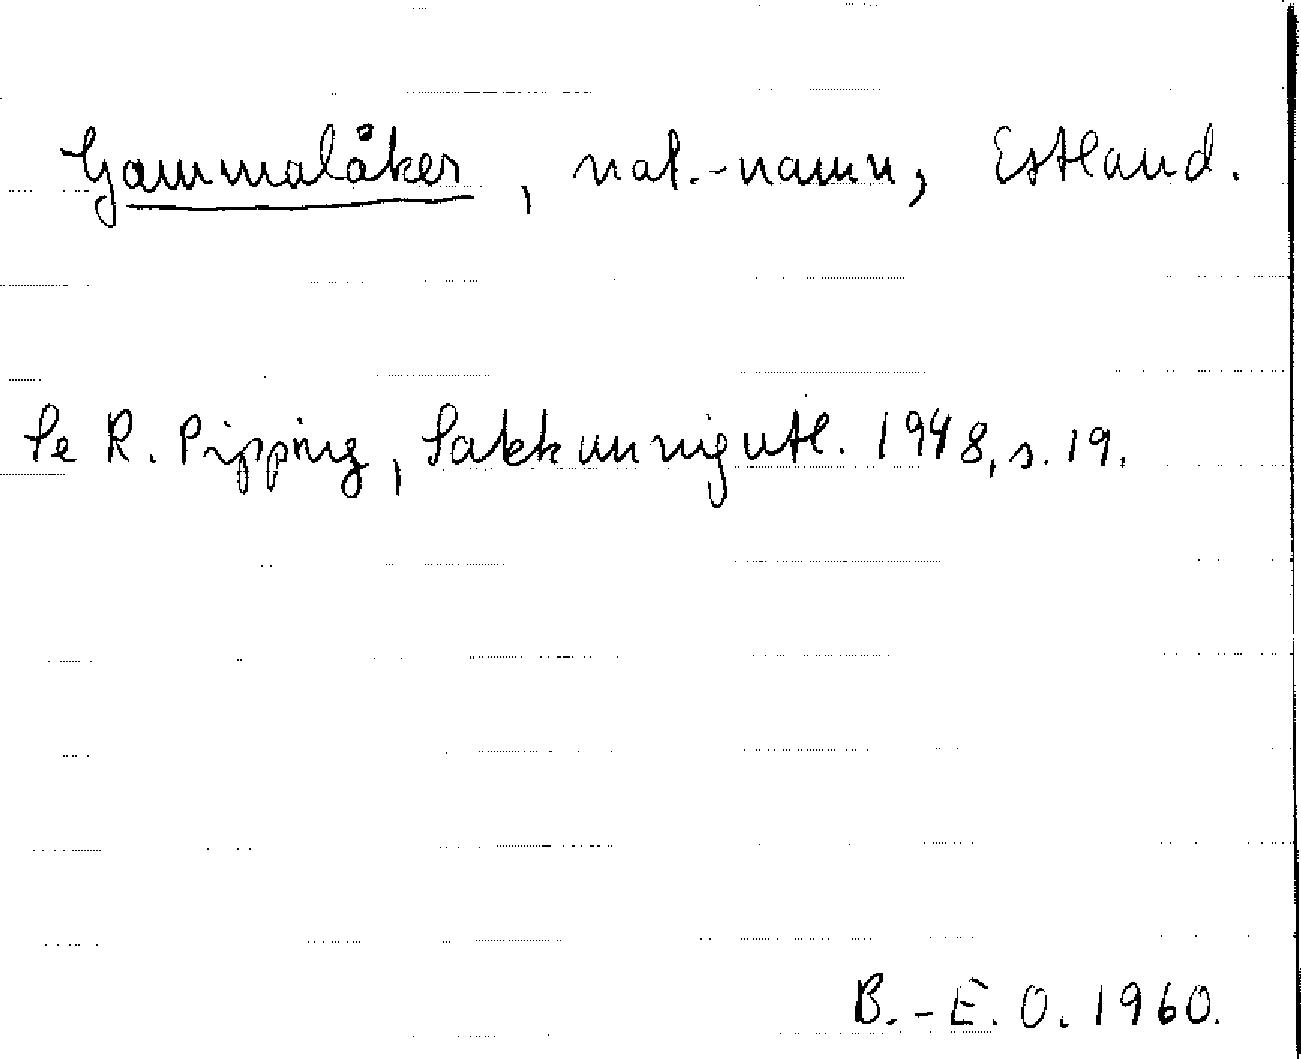 Gammalåker, nat.-namn, Estland.
Se R. Pipping, Sakkunnigutl. 1948, s. 19.
B.-E. O. 1960.